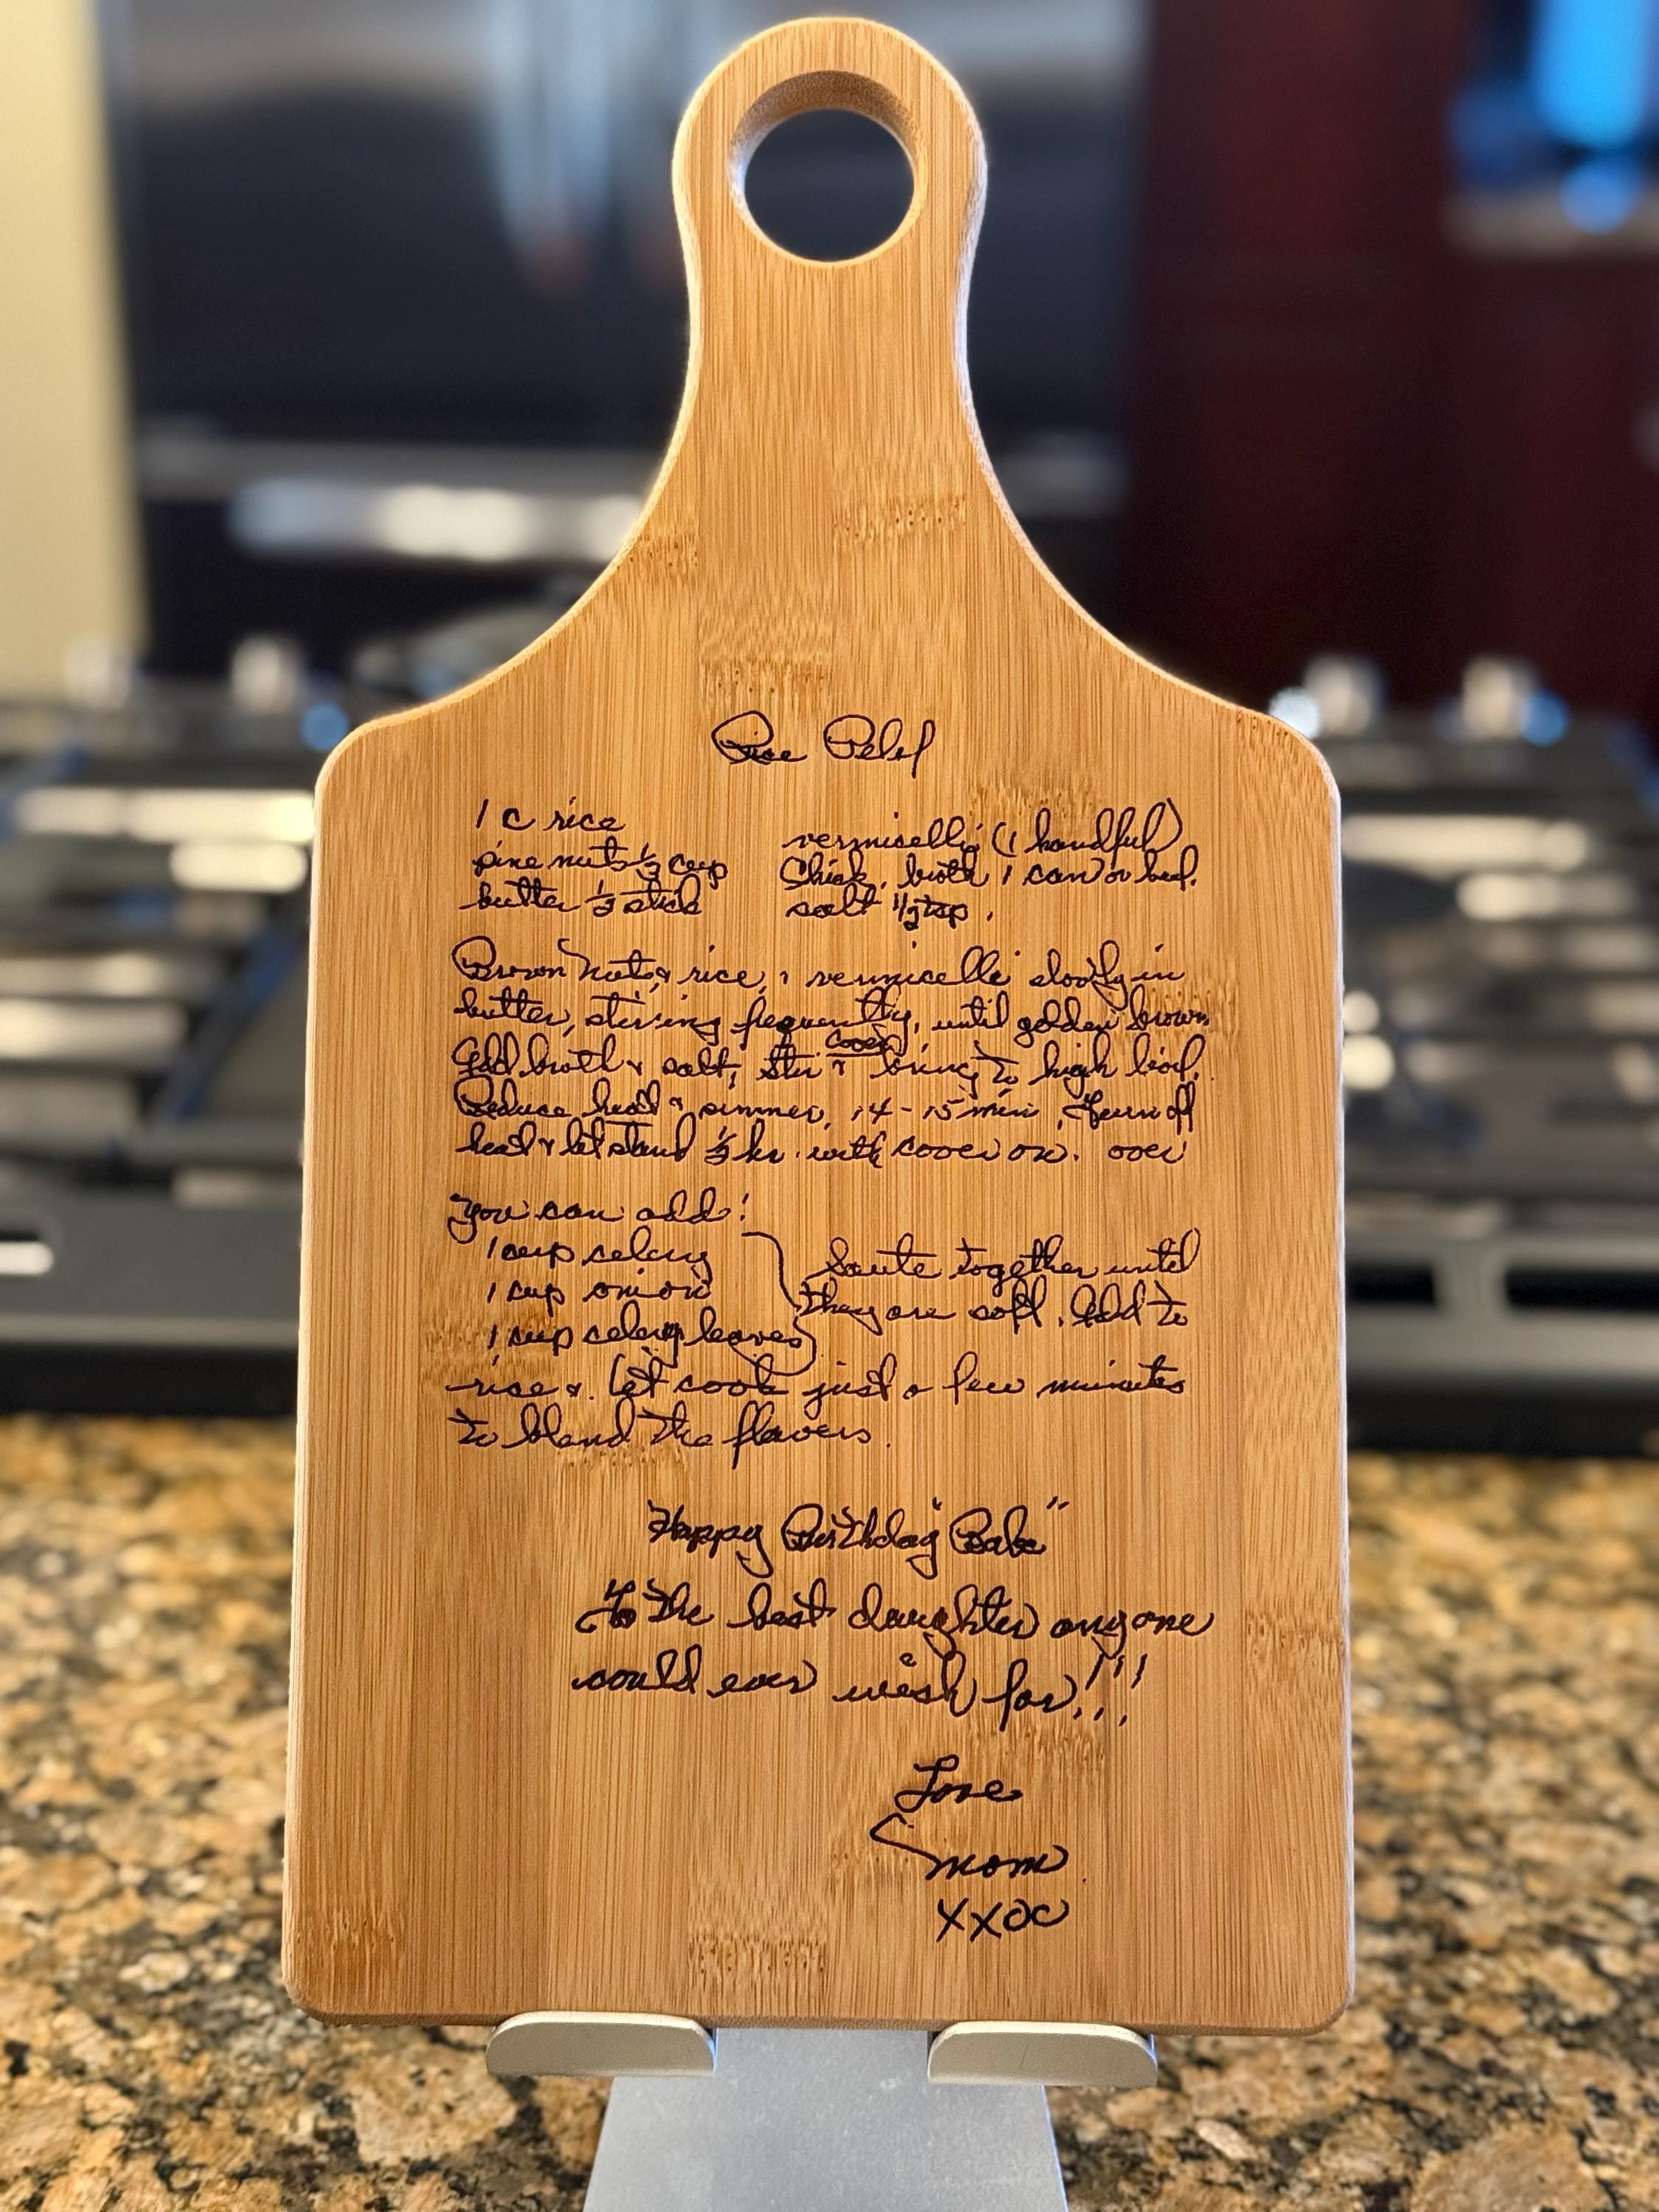 Rice Pelaf
1 c rice
pine nuts 1/3 cup
butter 1/2 stick
vermicelli (1 handful)
Chick. broth 1 can or bul.
salt 1/2 tsp.
Brown nuts & rice, & vermicelli slowly in
butter, stirring frequently, until golden brown.
Add broth & salt, stir & cover bring to high boil.
Reduce heat & simmer, 14-15 min, turn off
heat & let stand 1/2 hr. with cover on. over
You can add:
1 cup celery
1 cup onion
1 cup celery leaves
Saute together until
they are soft. Add to
rice & let cook just a few minutes
to blend the flavors.
Happy Birthday "Babe"
To the best daughter anyone
could ever wish for!!!
Love
Mom
XXOO